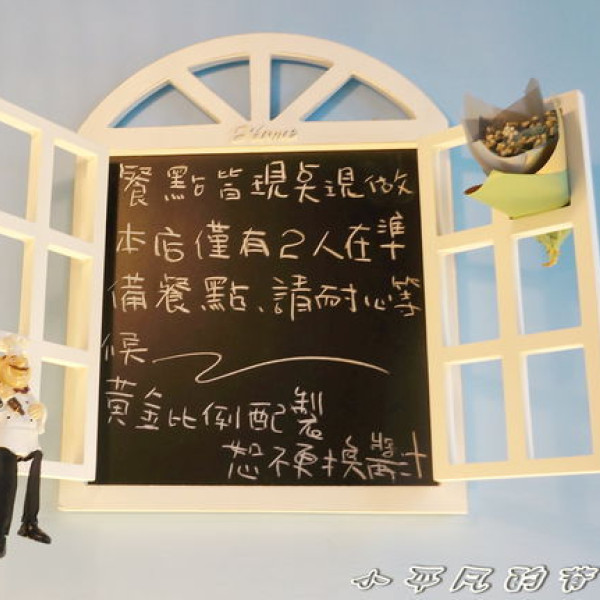 餐點皆現點現做
本店僅有2人在準
備餐點、請耐心等
候
黃金比例配製
恕不更換醬汁
小平凡的背